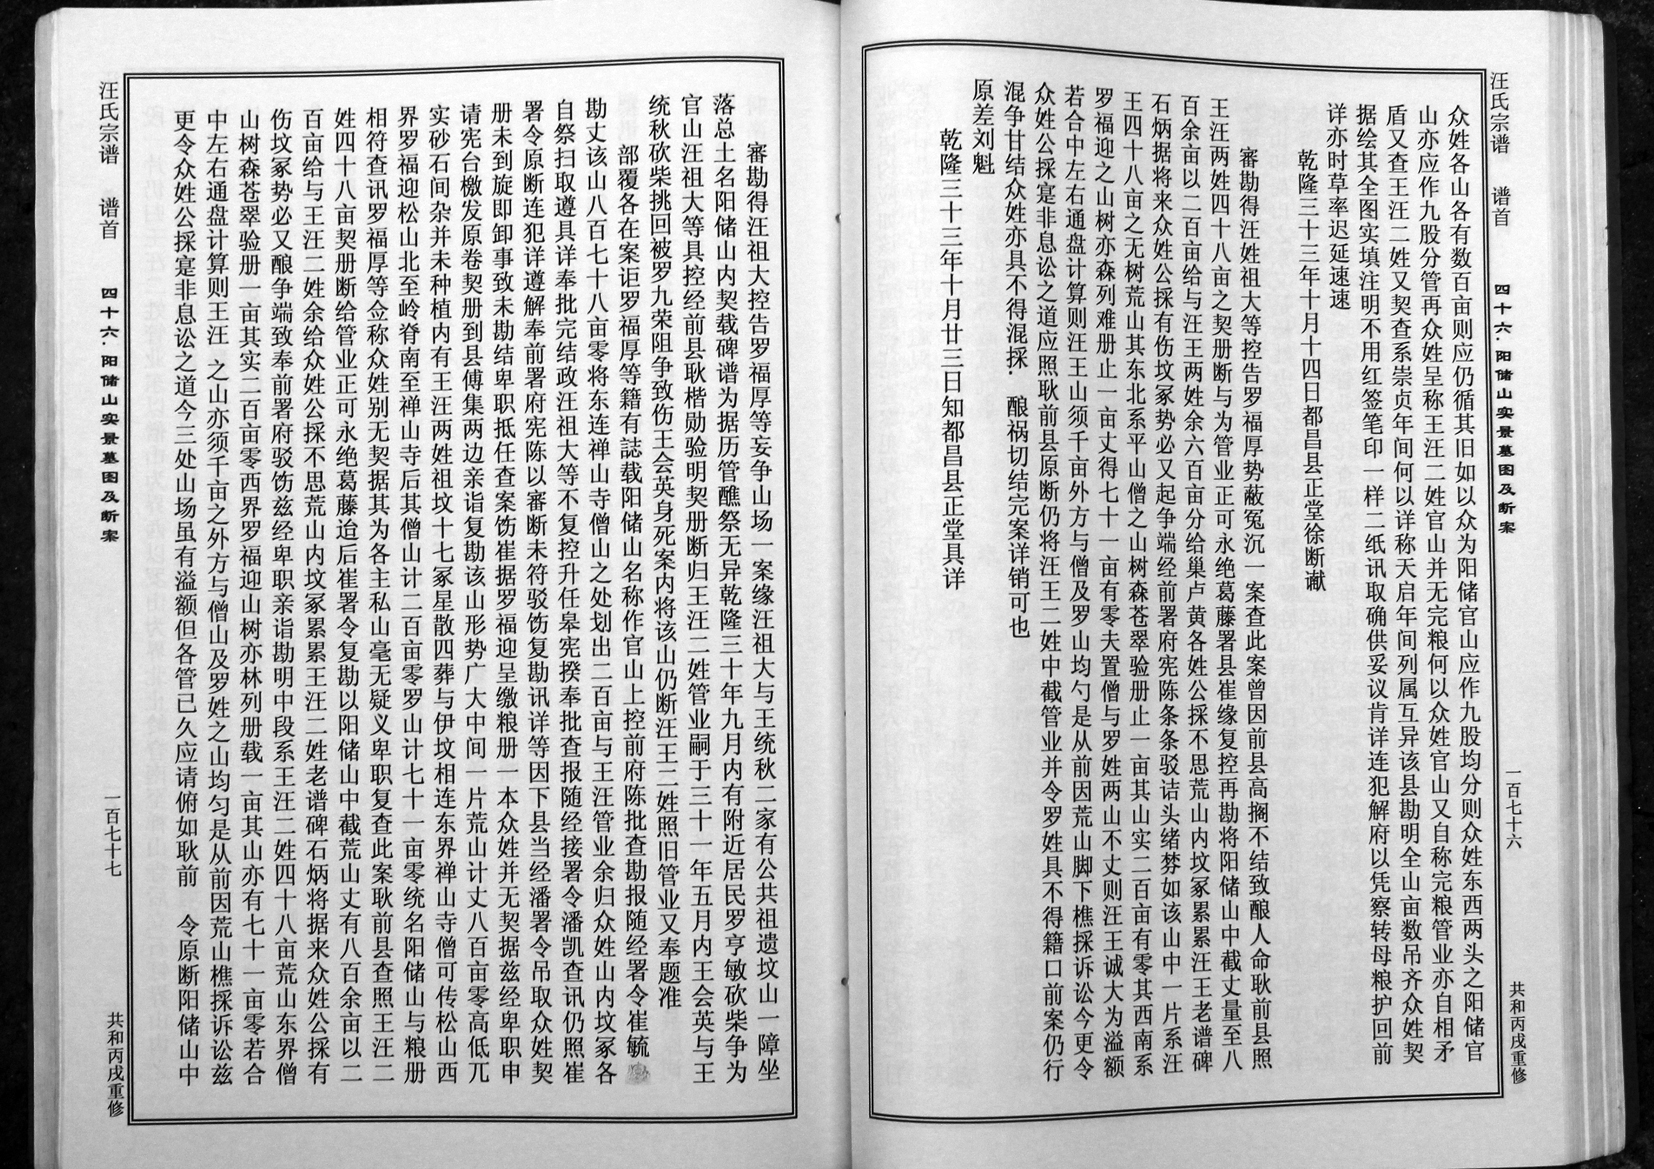 汪氏宗谱 谱首 四十六·阳储山实景墓图及断案 一百七十六 共和丙戌重修
众姓各山各有数百亩则应仍循其旧如以众为阳储官山应作九股均分则众姓东西两头之阳储官
山亦应作九股分管再众姓呈称王汪二姓官山并无完粮何以众姓官山又自称完粮管业亦自相矛
盾又查王汪二姓又契查系崇贞年间何以详称天启年间列属互异该县勘明全山亩数吊齐众姓契
据绘其全图实填注明不用红签笔印一样二纸讯取确供妥议肯详连犯解府以凭察转母粮护回前
详亦时草率迟延速速
乾隆三十三年十月十四日都昌县正堂徐断谳
審勘得汪姓祖大等控告罗福厚势蔽冤沉一案查此案曾因前县高搁不结致酿人命耿前县照
王汪两姓四十八亩之契册断与为管业正可永绝葛藤署县崔缘复控再勘将阳储山中截丈量至八
百余亩以二百亩给与汪王两姓余六百亩分给巢卢黄各姓公採不思荒山内坟冢累累汪王老谱碑
石炳据将来众姓公採有伤坟冢势必又起争端经前署府宪陈条条驳诘头绪棼如该山中一片系汪
王四十八亩之无树荒山其东北系平山僧之山树森苍翠验册止一亩其山实二百亩有零其西南系
罗福迎之山树亦森列难册止一亩丈得七十一亩有零夫置僧与罗姓两山不丈则汪王诚大为溢额
若合中左右通盘计算则汪王山须千亩外方与僧及罗山均匀是从前因荒山脚下樵採诉讼今更令
众姓公採寔非息讼之道应照耿前县原断仍将汪王二姓中截管业并令罗姓具不得籍口前案仍行
混争甘结众姓亦具不得混採.酿祸切结完案详销可也
原差刘魁
乾隆三十三年十月廿三日知都昌县正堂具详
審勘得汪祖大控告罗福厚等妄争山场一案缘汪祖大与王统秋二家有公共祖遗坟山一障坐
落总土名阳储山内契载碑谱为据历管醮祭无异乾隆三十年九月内有附近居民罗亨敏砍柴争为
官山汪祖大等具控经前县耿楷勋验明契册断归王汪二姓管业嗣于三十一年五月内王会英与王
统秋砍柴挑回被罗九荣阻争致伤王会英身死案内将该山仍断汪王二姓照旧管业又奉题准
部覆各在案讵罗福厚等籍有誌载阳储山名称作官山上控前府陈批查勘报随经署令崔毓
勘丈该山八百七十八亩零将东连禅山寺僧山之处划出二百亩与王汪管业余归众姓山内坟冢各
自祭扫取遵具详奉批完结政汪祖大等不复控升任皋宪揆奉批查报随经接署令潘凯查讯仍照崔
署令原断连犯详遵解奉前署府宪陈以審断未符驳饬复勘讯详等因下县当经潘署令吊取众姓契
册未到旋即卸事致未勘结卑职抵任查案饬崔据罗福迎呈缴粮册一本众姓并无契据兹经卑职申
请宪台檄发原卷契册到县傅集两边亲诣复勘该山形势广大中间一片荒山计丈八百亩零高低兀
实砂石间杂并未种植内有王汪两姓祖坟十七冢星散四葬与伊坟相连东界禅山寺僧可传松山西
界罗福迎松山北至岭脊南至禅山寺后其僧山计二百亩零罗山计七十一亩零统名阳储山与粮册
相符查讯罗福厚等佥称众姓别无契据其为各主私山毫无疑义卑职复查此案耿前县查照王汪二
姓四十八亩契册断给管业正可永绝葛藤迨后崔署令复勘以阳储山中截荒山丈有八百余亩以二
百亩给与王汪二姓余给众姓公採不思荒山内坟冢累累王汪二姓老谱碑石炳将据来众姓公採有
伤坟冢势必又酿争端致奉前署府驳饬兹经卑职亲诣勘明中段系王汪二姓四十八亩荒山东界僧
山树森苍翠验册一亩其实二百亩零西界罗福迎山树亦林列册载一亩其山亦有七十一亩零若合
中左右通盘计算则王汪 之山亦须千亩之外方与僧山及罗姓之山均匀是从前因荒山樵採诉讼兹
更令众姓公採寔非息讼之道今三处山场虽有溢额但各管已久应请俯如耿前 令原断阳储山中
汪氏宗谱 谱首 四十六·阳储山实景墓图及断案 一百七十七 共和丙戌重修